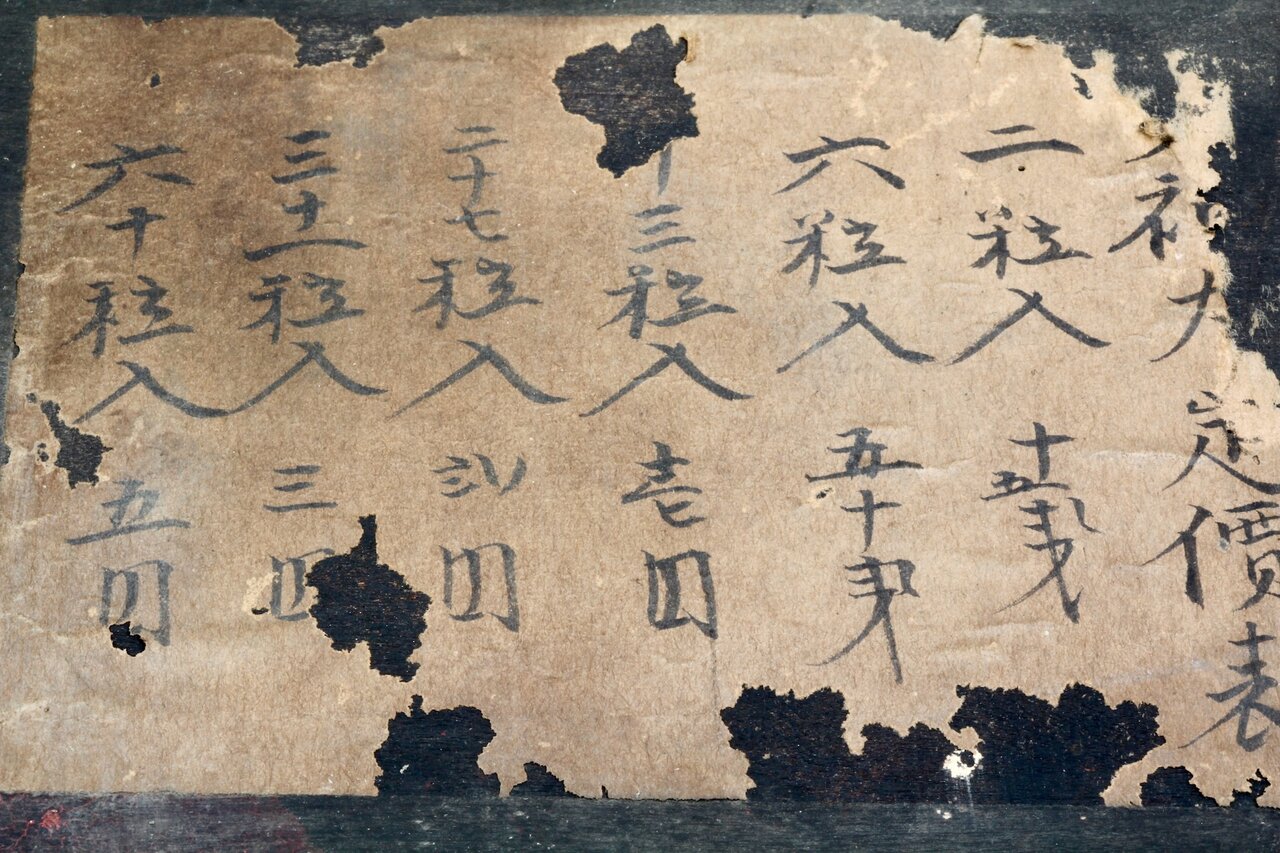 定價表
二粒入 十五戋
六粒入 五十戋
十三粒入 壱円
二十七粒入 弐円
粒入 三円
六十粒入 五円